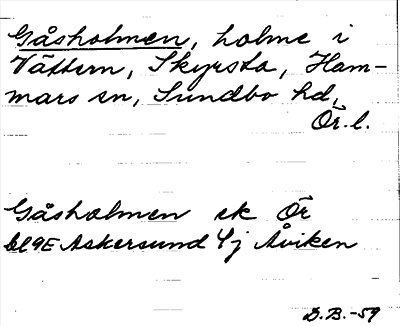 Gåsholmen, holme i
Vättern, Skyrsta, Ham-
mars sn, Sundbo hd,
Ör. l.
Gåsholmen ek Ör
bl 9E Askersund 4j Åviken
D.B.-59